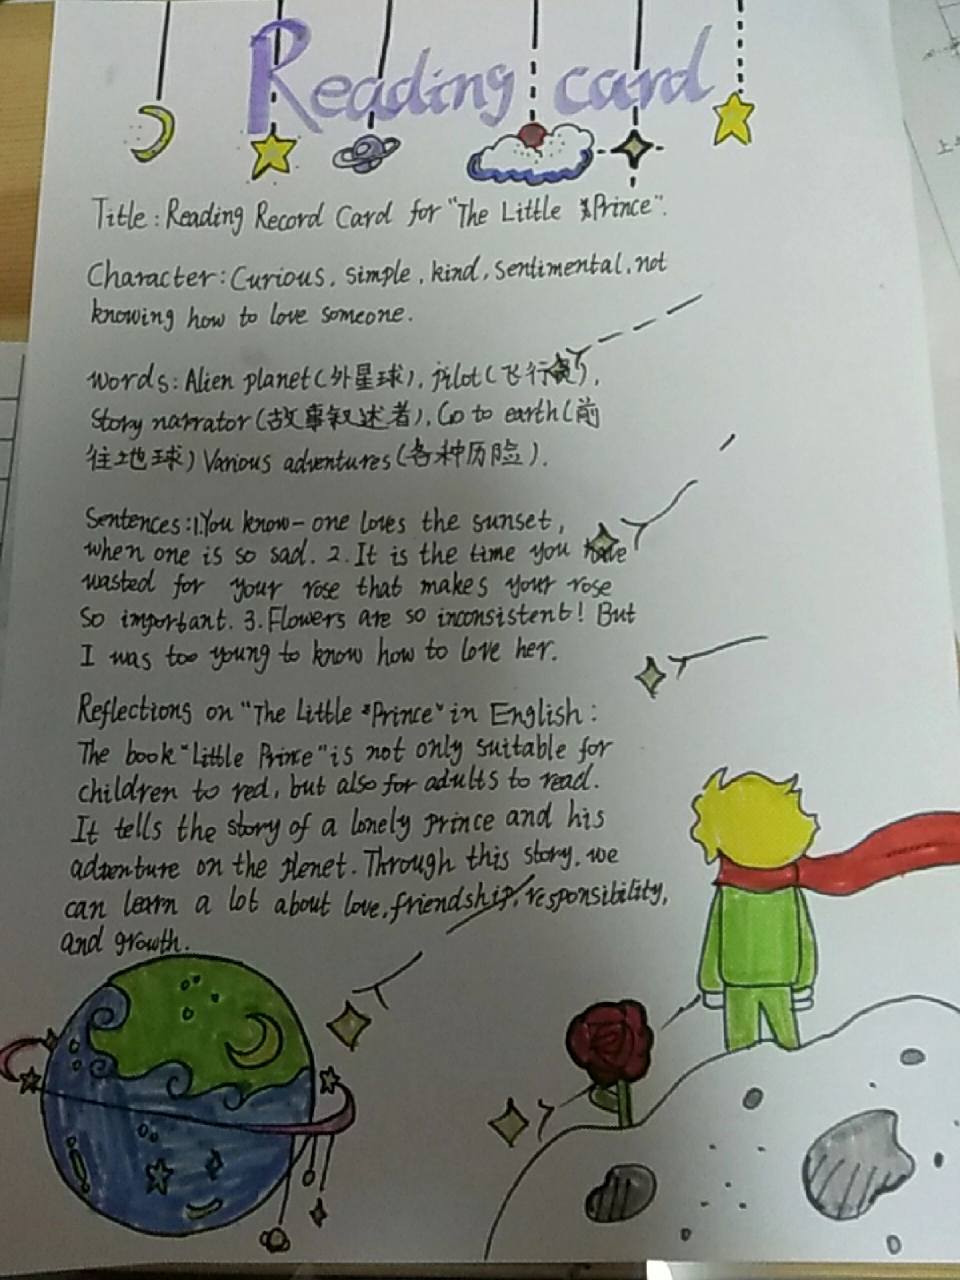 Reading card
Title: Reading Record Card for "The Little Prince".
Character: Curious, simple, kind, sentimental, not
knowing how to love someone.
Words: Alien planet(外星球), pilot(飞行员),
Story narrator(故事叙述者), Go to earth(前
往地球) Various adventures(各种历险).
Sentences: 1. You know - one loves the sunset,
when one is so sad. 2. It is the time you have
wasted for your rose that makes your rose
So important. 3. Flowers are so inconsistent! But
I was too young to know how to love her.
Reflections on "The Little Prince" in English:
The book "Little Prince" is not only suitable for
children to red, but also for adults to read.
It tells the story of a lonely prince and his
adventure on the plenet. Through this story, we
can learn a lot about love, friendship, responsibility,
and growth.